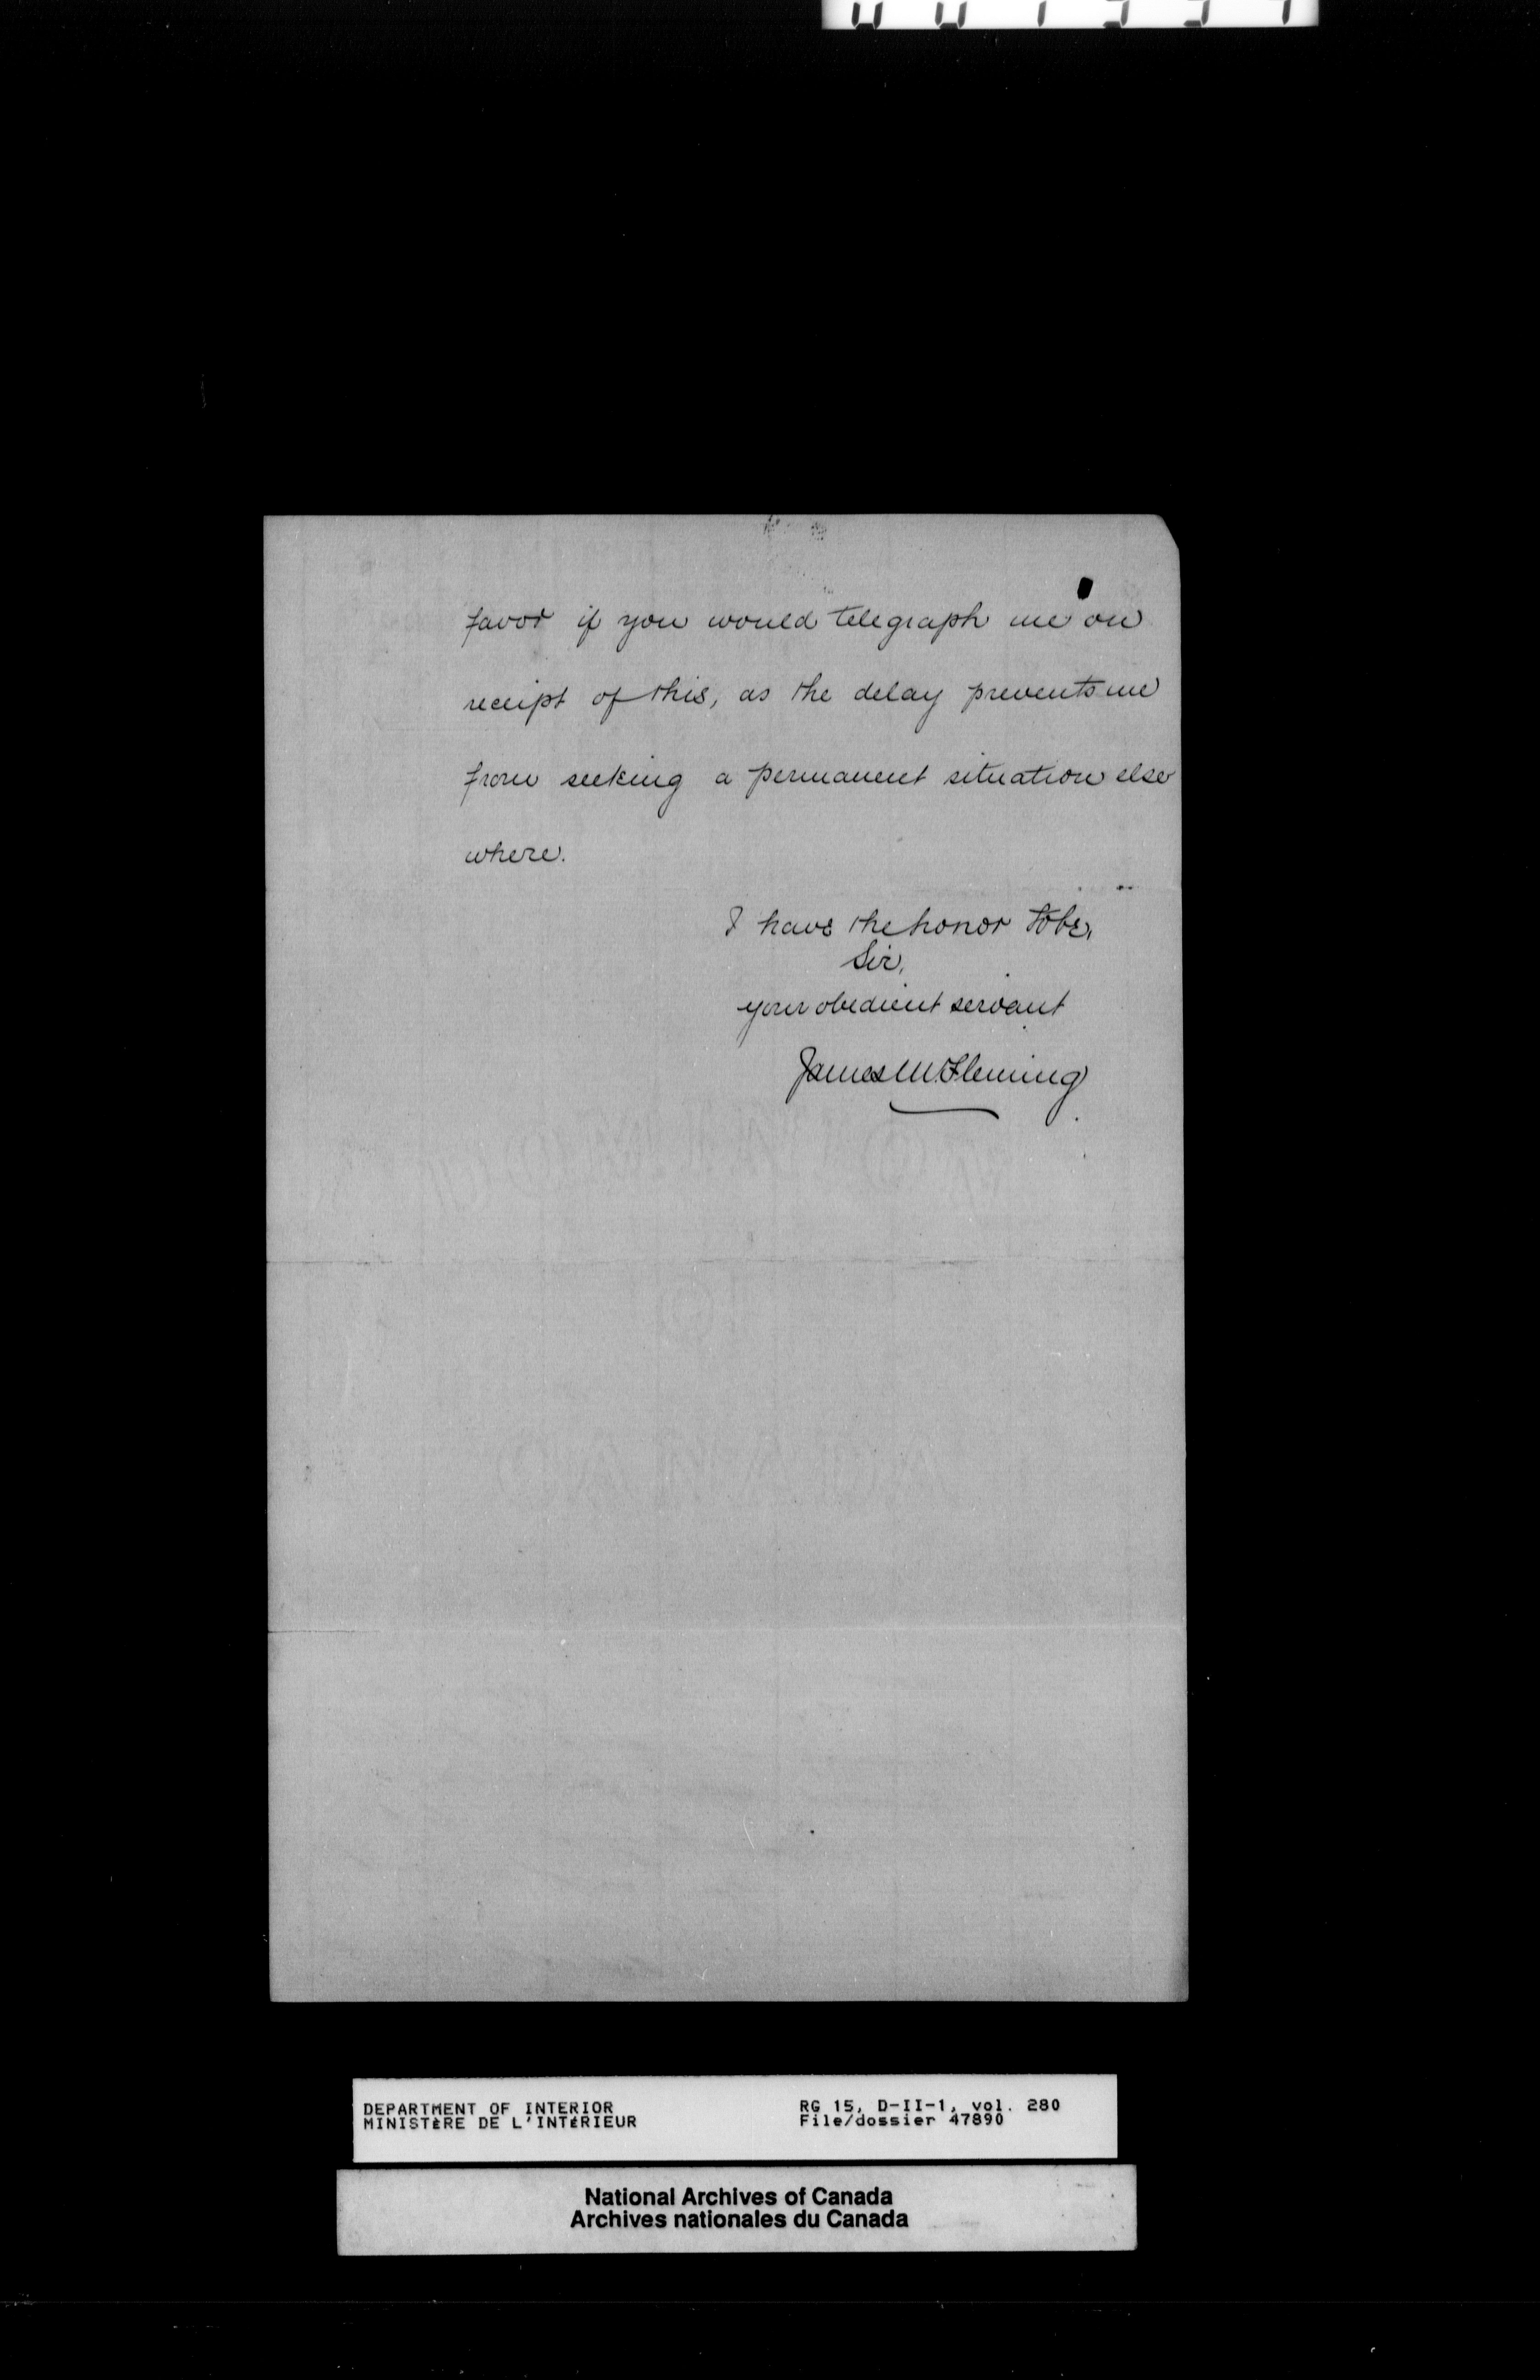 favor if you would telegraph me on
receipt of this, as the delay prevents me
from seeking a permanent situation else
where.
I have the honor to be,
Sir,
your obedient servant
James M. Fleming
DEPARTMENT OF INTERIOR
MINISTÈRE DE L'INTÉRIEUR
RG 15, D-II-1, vol. 280
File/dossier 47890
National Archives of Canada
Archives nationales du Canada